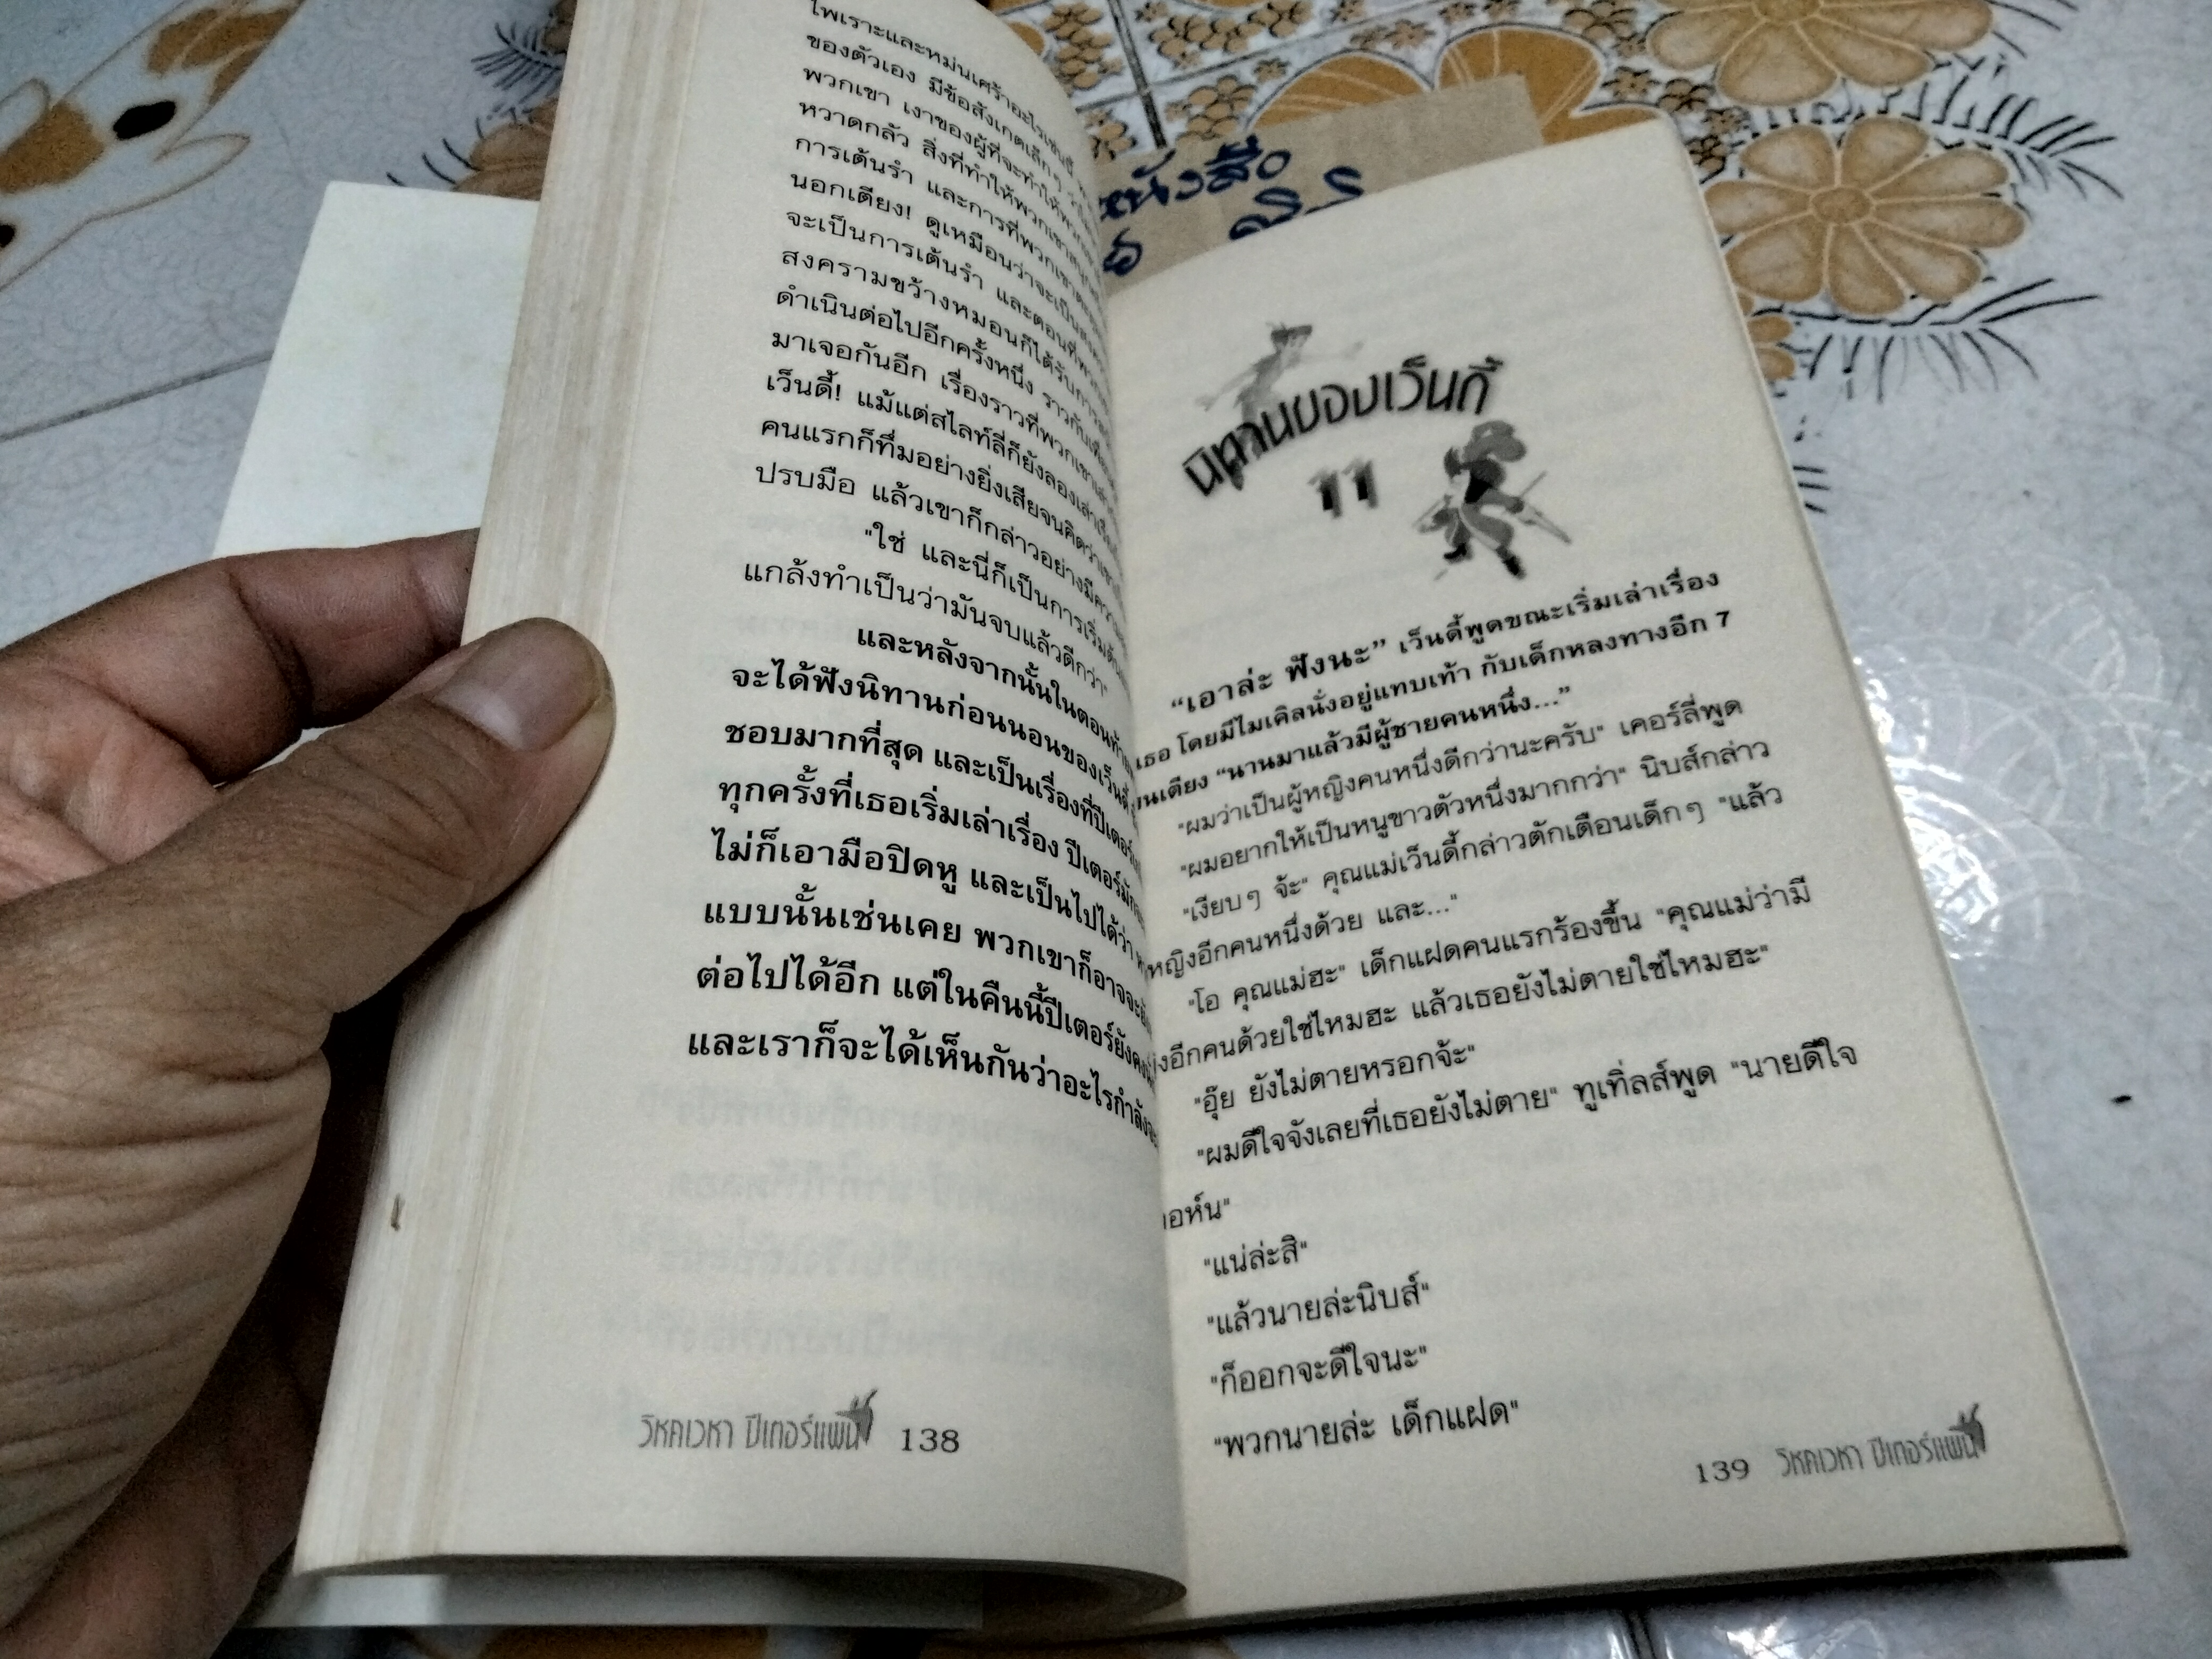 ไพเราะและหม่นเศร้าอะไรเช่นนี้
ของตัวเอง มีข้อสังเกตเล็กๆ
พวกเขา เงาของผู้ที่จะทำให้พวก
หวาดกลัว สิ่งที่ทำให้พวกเขาสนุก
การเต้นรำ และการที่พวกเขา
นอกเตียง! ดูเหมือนว่าจะเป็น
จะเป็นการเต้นรำ และตอนที่
สงครามขว้างหมอนก็ได้รับการ
ดำเนินต่อไปอีกครั้งหนึ่ง ราวกับ
มาเจอกันอีก เรื่องราวที่พวกเขา
เว็นดี้! แม้แต่สไลท์ลี่ก็ยังลองเล่า
คนแรกก็ที่มอย่างยิ่งเสียจนคิดว่า
ปรบมือ แล้วเขาก็กล่าวอย่างมี
"ใช่ และนี่ก็เป็นการเริ่มต้น
แกล้งทำเป็นว่ามันจบแล้วดีกว่า"
และหลังจากนั้นในตอนท้าย
จะได้ฟังนิทานก่อนนอนของเว็นดี้
ชอบมากที่สุด และเป็นเรื่องที่ปีเตอร์
ทุกครั้งที่เธอเริ่มเล่าเรื่อง ปีเตอร์มัก
ไม่ก็เอามือปิดหู และเป็นไปได้ว่า
แบบนั้นเช่นเคย พวกเขาก็อาจจะ
ต่อไปได้อีก แต่ในคืนนี้ปีเตอร์ยังคง
และเราก็จะได้เห็นกันว่าอะไรกำลังจะ
วิหคเวหา ปีเตอร์แพน 138
หนังสือ
นิทานของเว็นดี้
11
“เอาล่ะ ฟังนะ” เว็นดี้พูดขณะเริ่มเล่าเรื่อง
เธอ โดยมีไมเคิลนั่งอยู่แทบเท้า กับเด็กหลงทางอีก 7
บนเตียง “นานมาแล้วมีผู้ชายคนหนึ่ง...”
"ผมว่าเป็นผู้หญิงคนหนึ่งดีกว่านะครับ" เคอร์ลี่พูด
"ผมอยากให้เป็นหนูขาวตัวหนึ่งมากกว่า" นิบส์กล่าว
"เงียบๆ จ้ะ" คุณแม่เว็นดี้กล่าวตักเตือนเด็กๆ "แล้ว
หญิงอีกคนหนึ่งด้วย และ..."
"โอ คุณแม่ฮะ" เด็กแฝดคนแรกร้องขึ้น "คุณแม่ว่ามี
อีกคนด้วยใช่ไหมฮะ แล้วเธอยังไม่ตายใช่ไหมฮะ"
"อุ๊ย ยังไม่ตายหรอกจ้ะ"
"ผมดีใจจังเลยที่เธอยังไม่ตาย" ทูเทิ่ลส์พูด "นายดีใจ
อห์น"
"แน่ล่ะสิ"
"แล้วนายล่ะนิบส์"
"ก็ออกจะดีใจนะ"
"พวกนายล่ะ เด็กแฝด"
139 วิหคเวหา ปีเตอร์แพน